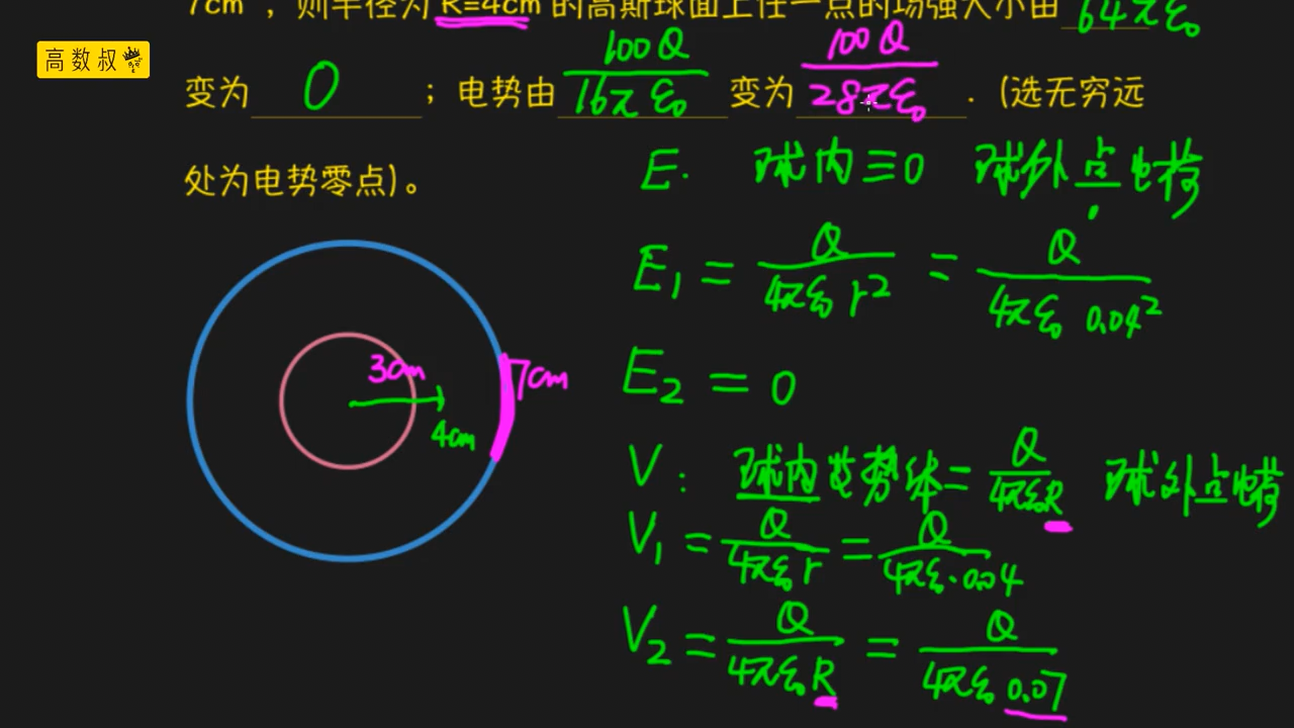 7cm ，则半径为 R=4cm 的高斯球面上任一点的场强大小由 64πε₀
高数叔
变为 0 ；电势由 100Q/16πε₀ 变为 100Q/28πε₀ . (选无穷远
处为电势零点)。
E. 球内≡0 球外点电荷
E₁ = Q/4πε₀r² = Q/4πε₀ 0.04²
3cm
7cm
4cm
E₂ = 0
V: 球内等势体 = Q/4πε₀R 球外点电荷
V₁ = Q/4πε₀r = Q/4πε₀·0.04
V₂ = Q/4πε₀R = Q/4πε₀ 0.07